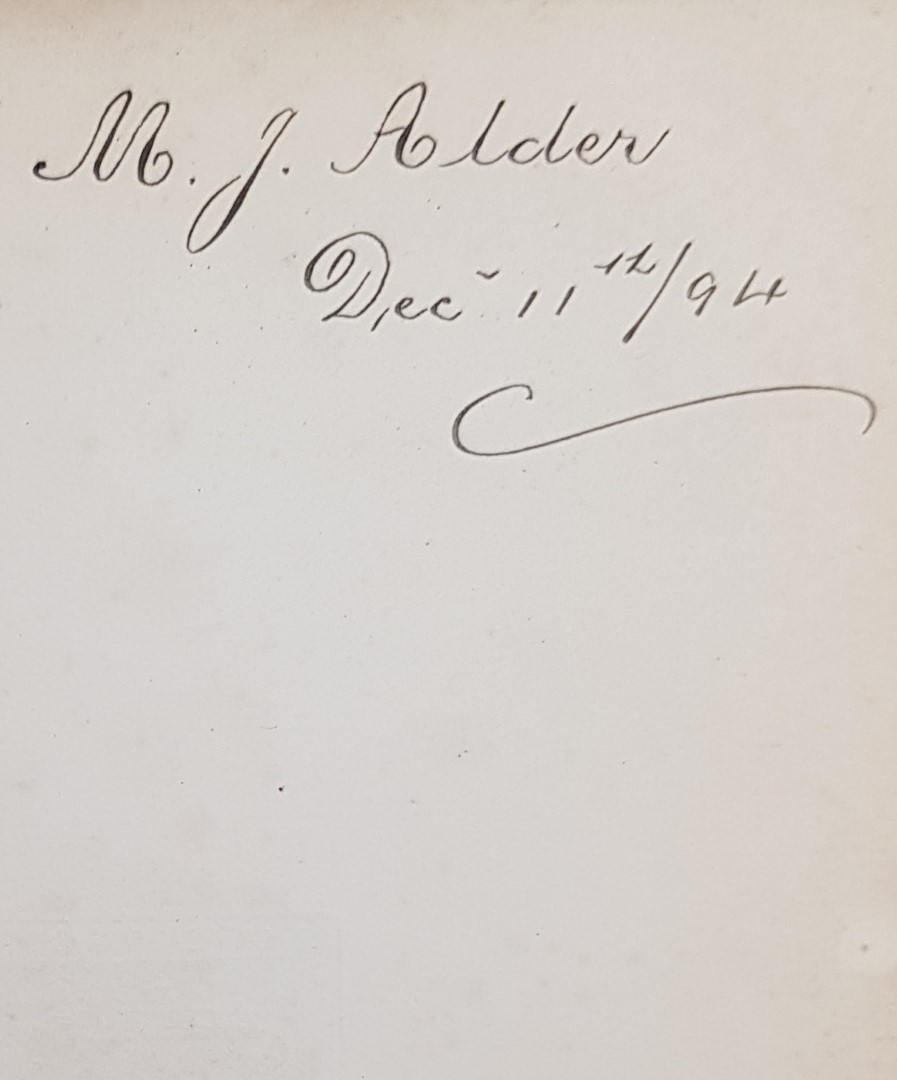 M. J. Alder
Decr 11th/94